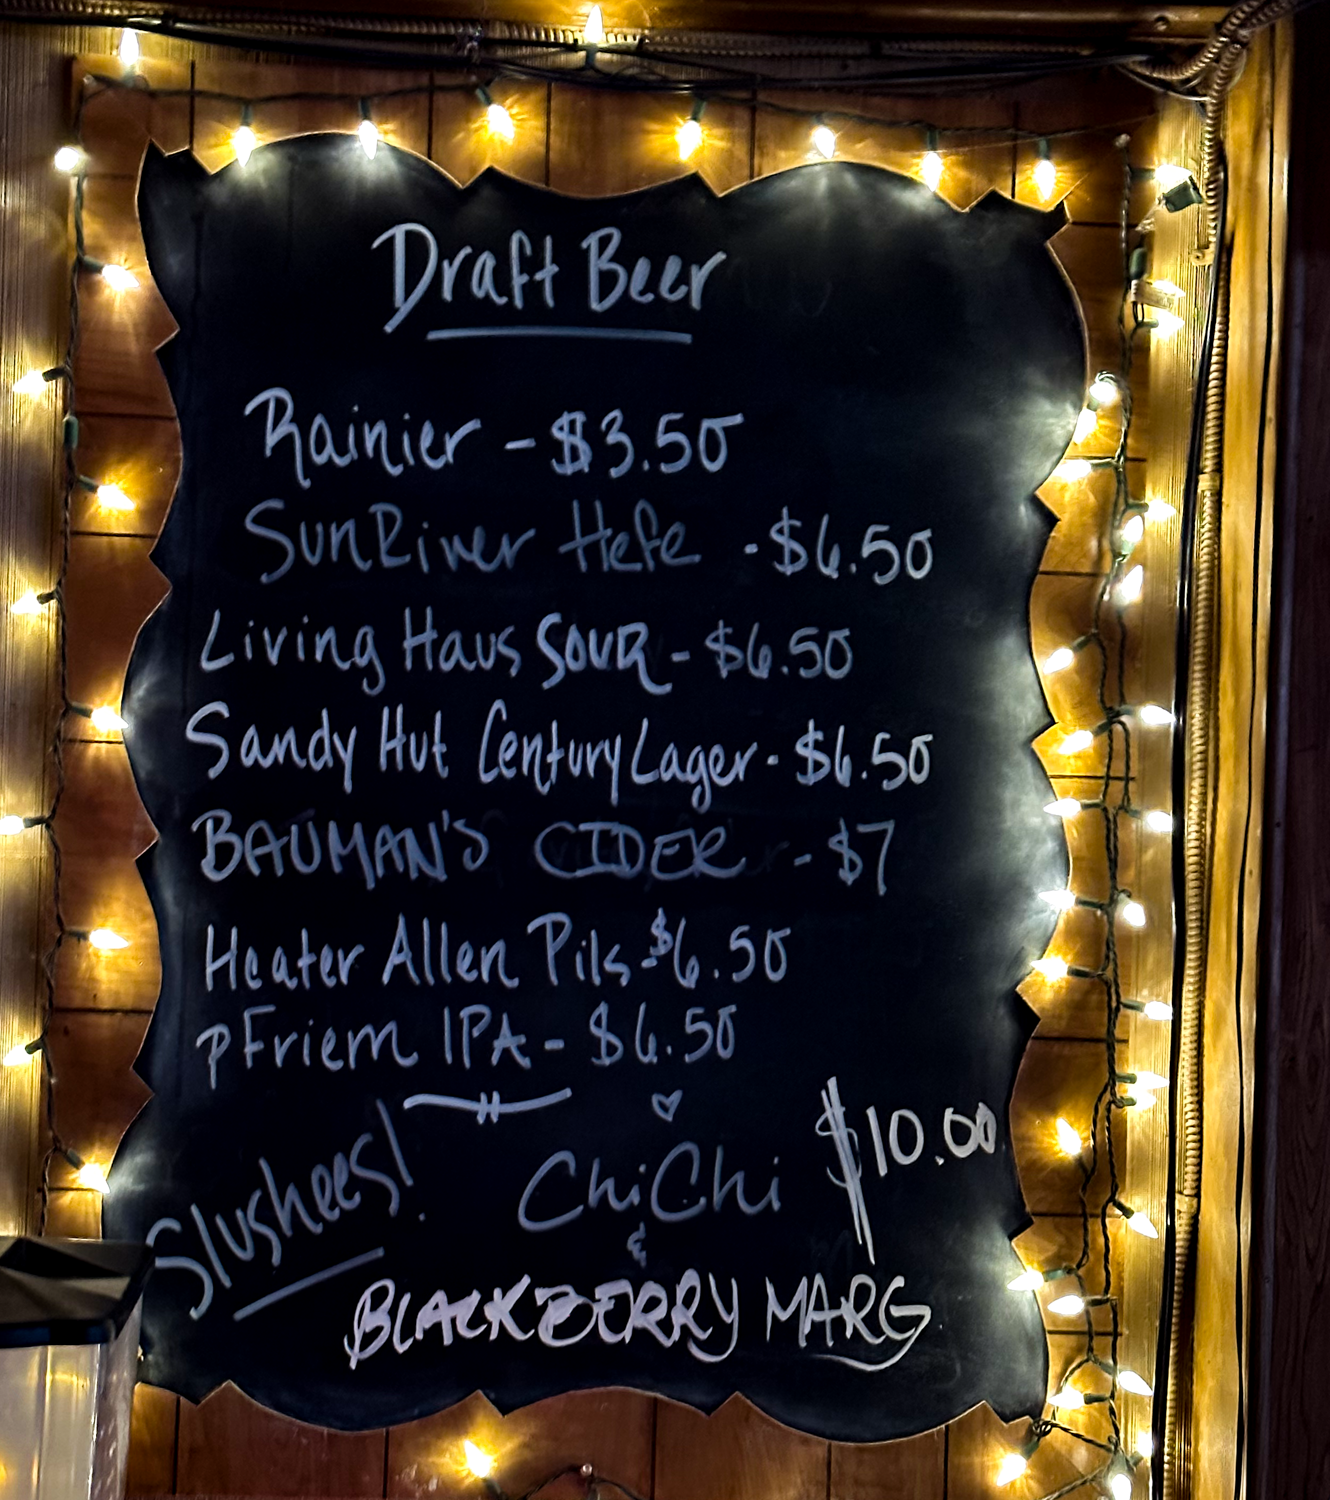 Draft Beer
Rainier - $3.50
SunRiver Hefe - $6.50
Living Haus SOUR - $6.50
Sandy Hut Century Lager - $6.50
BAUMAN'S CIDER - $7
Heater Allen Pils - $6.50
pFriem IPA - $6.50
Slushees!
ChiChi $10.00
&
BLACKBERRY MARG